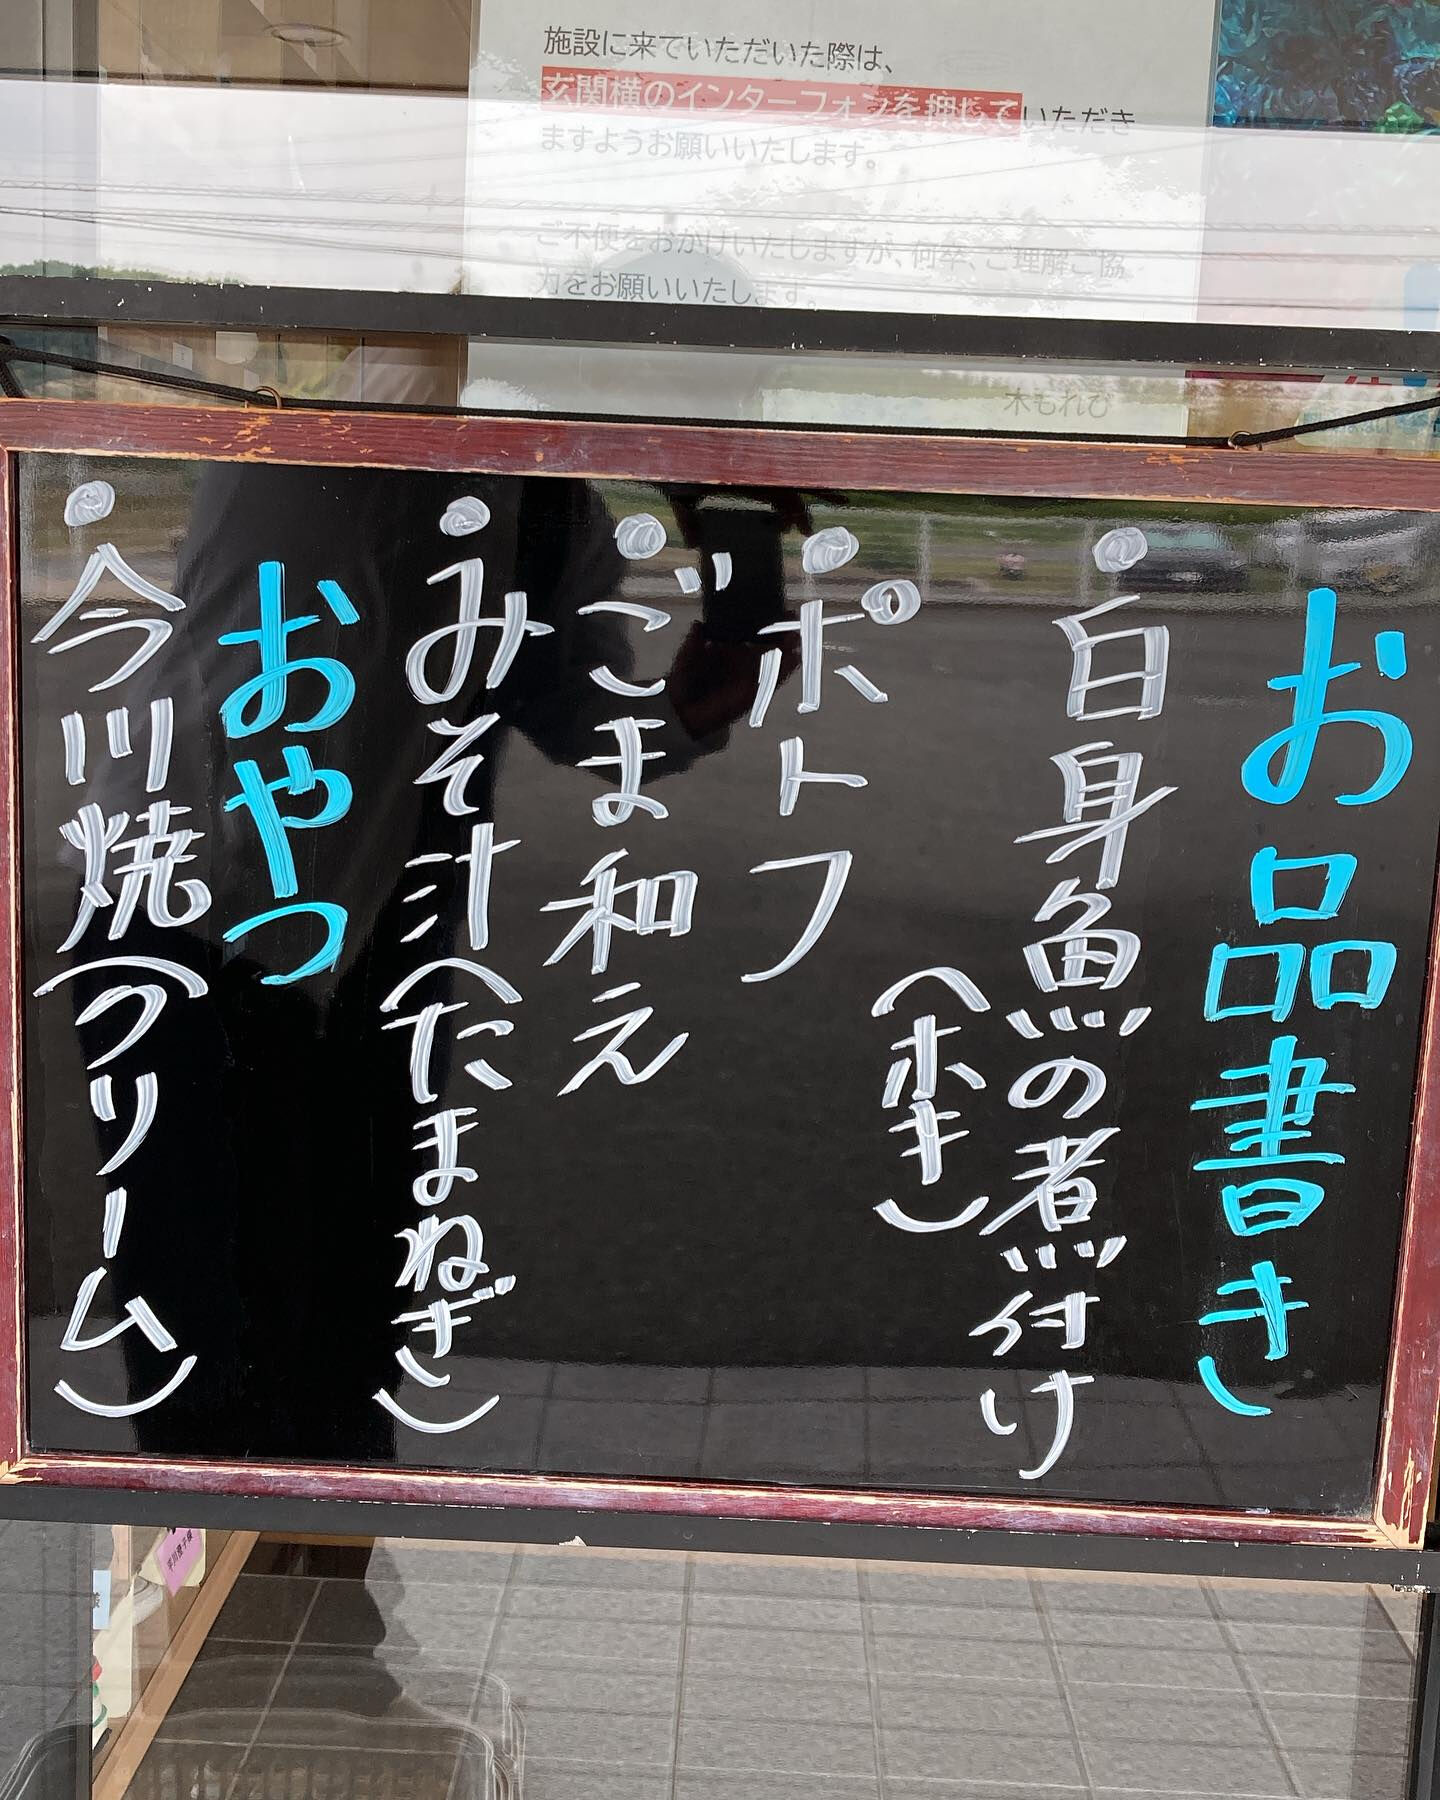 施設に来ていただいた際は、
玄関横のインターフォンを押していただき
ますようお願いいたします。
ご不便をおかけいたしますが、何卒、ご理解ご協
力をお願いいたします。
木もれび
お品書き
・白身魚の煮付け
(ホキ)
・ポトフ
・ごま和え
・みそ汁(たまねぎ)
おやつ
・今川焼(クリーム)
様